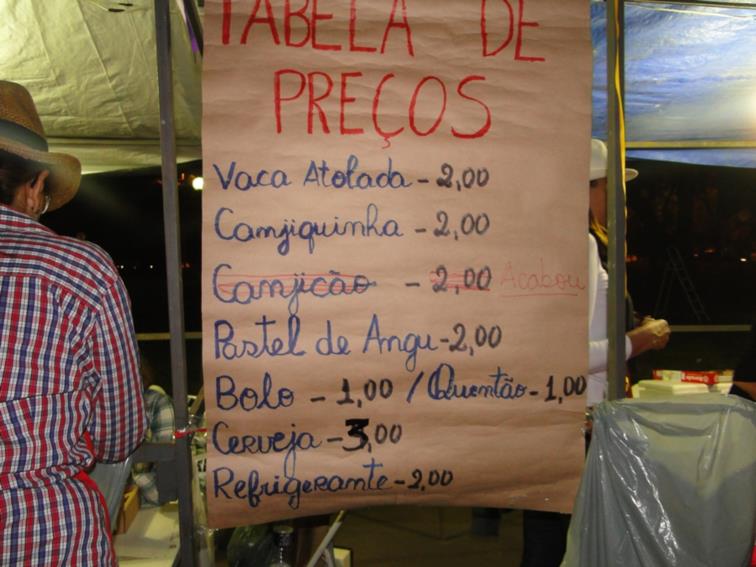 TABELA DE
PREÇOS
Vaca Atolada - 2,00
Canjiquinha - 2,00
Canjicão - 2,00 Acabou
Pastel de Angu - 2,00
Bolo - 1,00 / Quentão - 1,00
Cerveja - 3,00
Refrigerante - 2,00